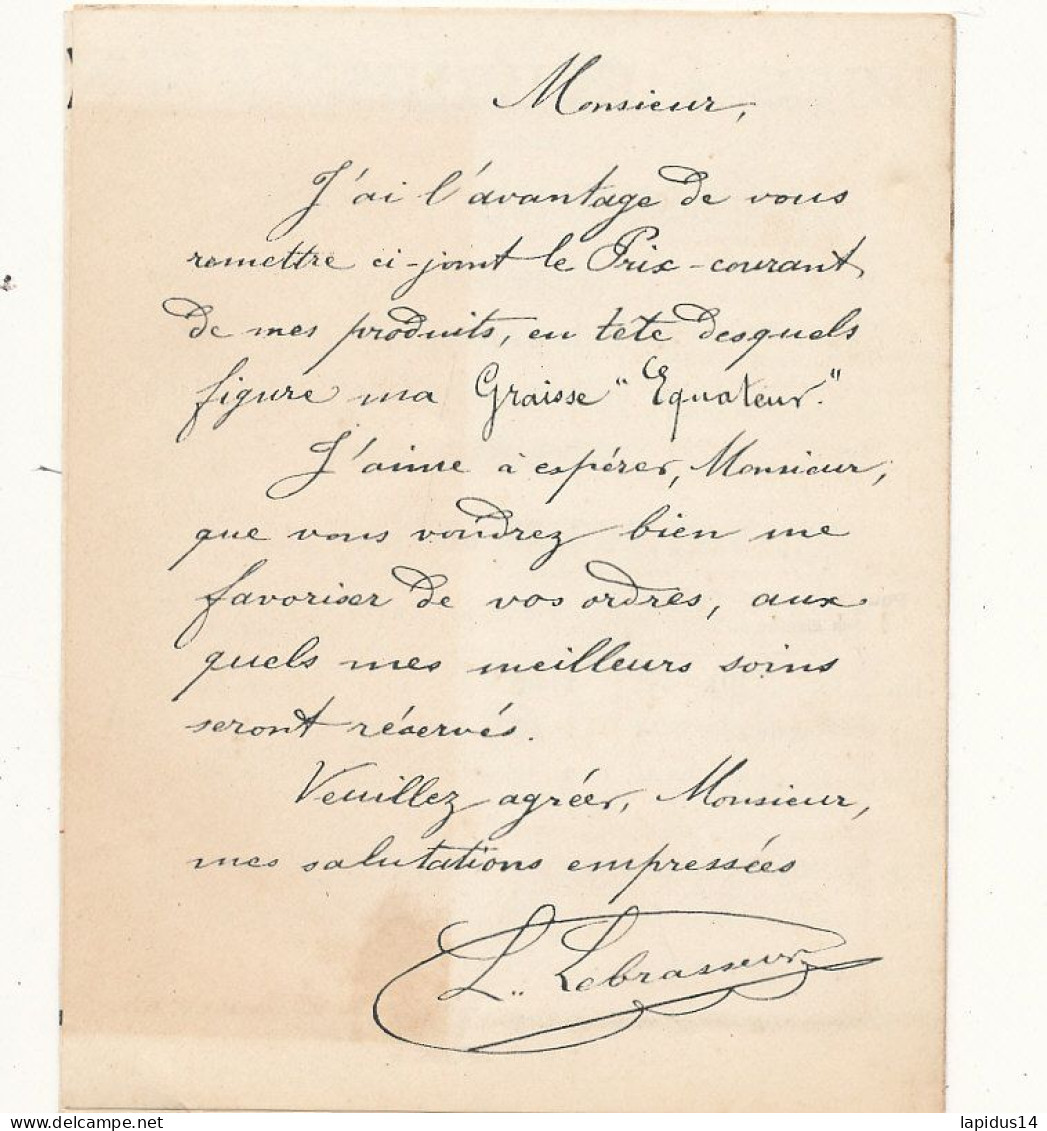 Monsieur,
J'ai l'avantage de vous
remettre ci-joint le Prix-courant
de mes produits, en tête desquels
figure ma Graisse "Equateur."
J'aime à espérer, Monsieur,
que vous voudrez bien me
favoriser de vos ordres, aux
quels mes meilleurs soins
seront réservés.
Veuillez agréer, Monsieur,
mes salutations empressées
L. Lebrasseur
lapidus14